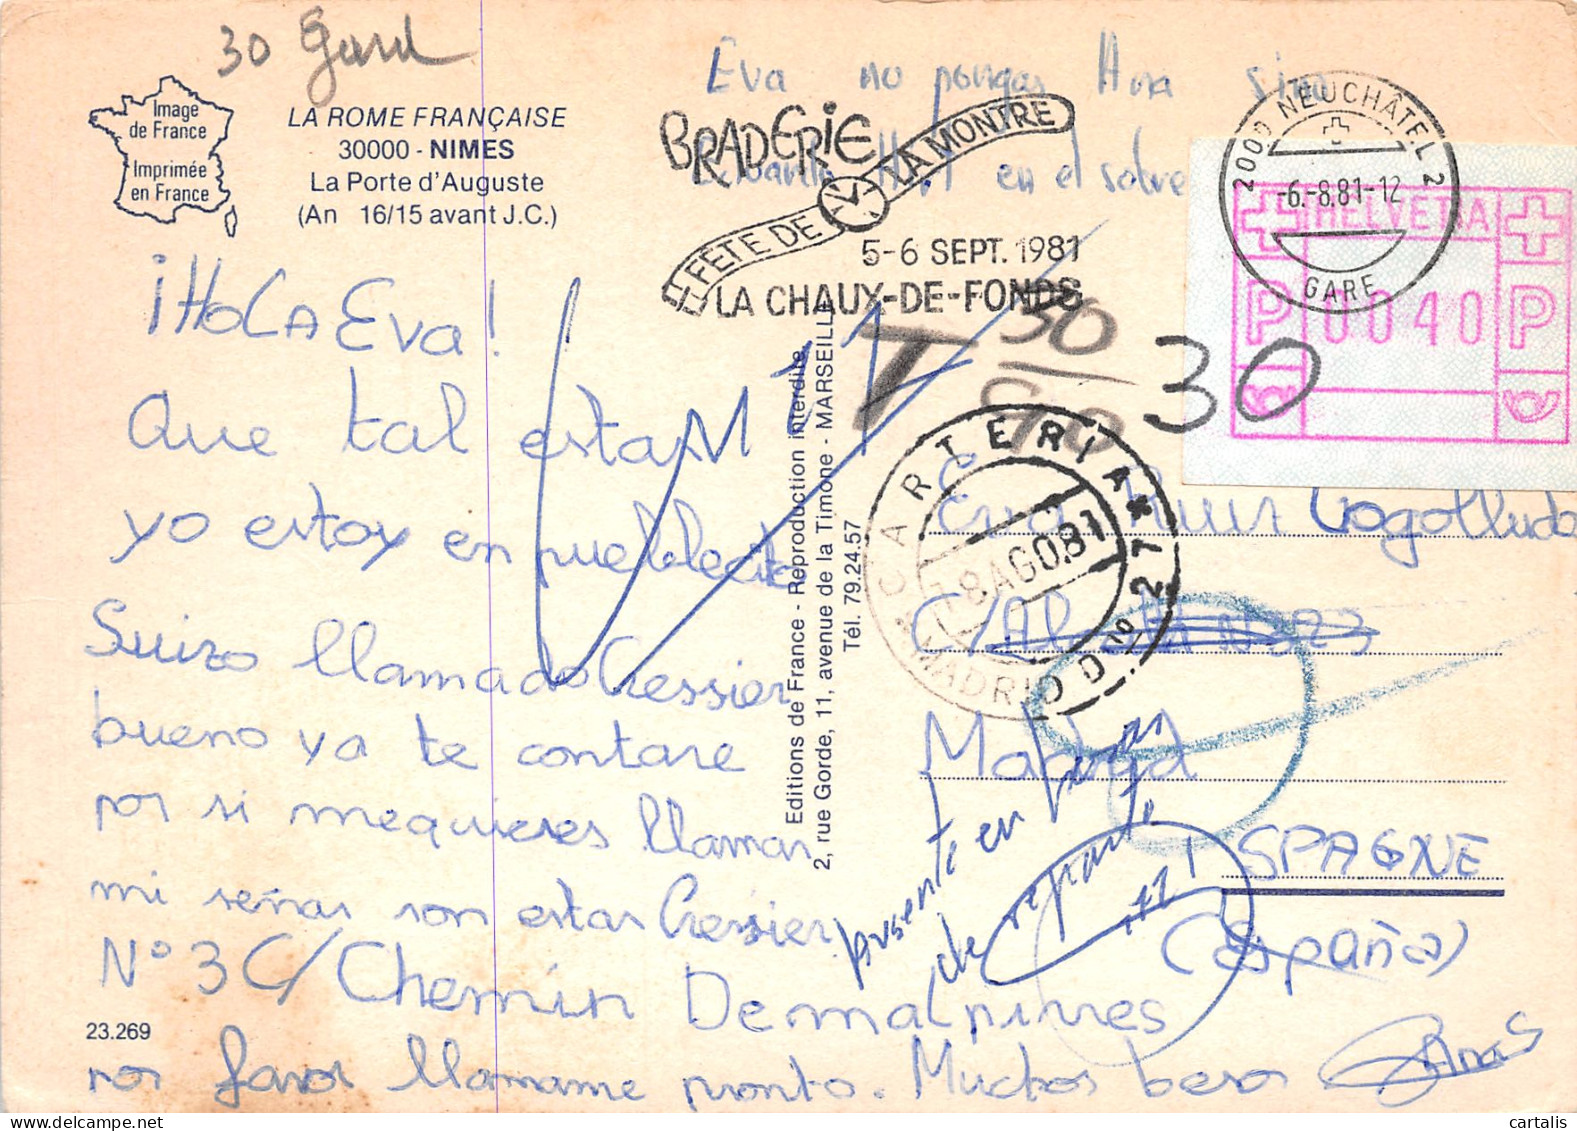 30 Gard
Image
de France
Imprimée
en France
LA ROME FRANÇAISE
30000 - NIMES
La Porte d'Auguste
(An 16/15 avant J.C.)
Eva no pongas Ana sino
en el sobre
BRADERIE
FÊTE DE LA MONTRE
5-6 SEPT. 1981
LA CHAUX-DE-FONDS
2000 NEUCHÂTEL 2
-6.-8.81-12
GARE
HELVETIA
P 0040 P
T 30
30
¡HOLA Eva!
Que tal estas
yo estoy en
Suizo llamado Cressier
bueno ya te contare
por si mequieres llamar
mi señas son estas Cressier
Nº 3 C/ Chemin Demalpierres
por favor llamame pronto. Muchos besos
Anas
23.269
Editions de France - Reproduction interdite
2, rue Gorde, 11, avenue de la Timone - MARSEILLE
Tél. 79.24.57
CARTERIA 27
8 AGO.81
MADRID
Eva Ruiz Cogolludo
C/Al
Madrid
SPAGNE
(España)
presente en
de reparto